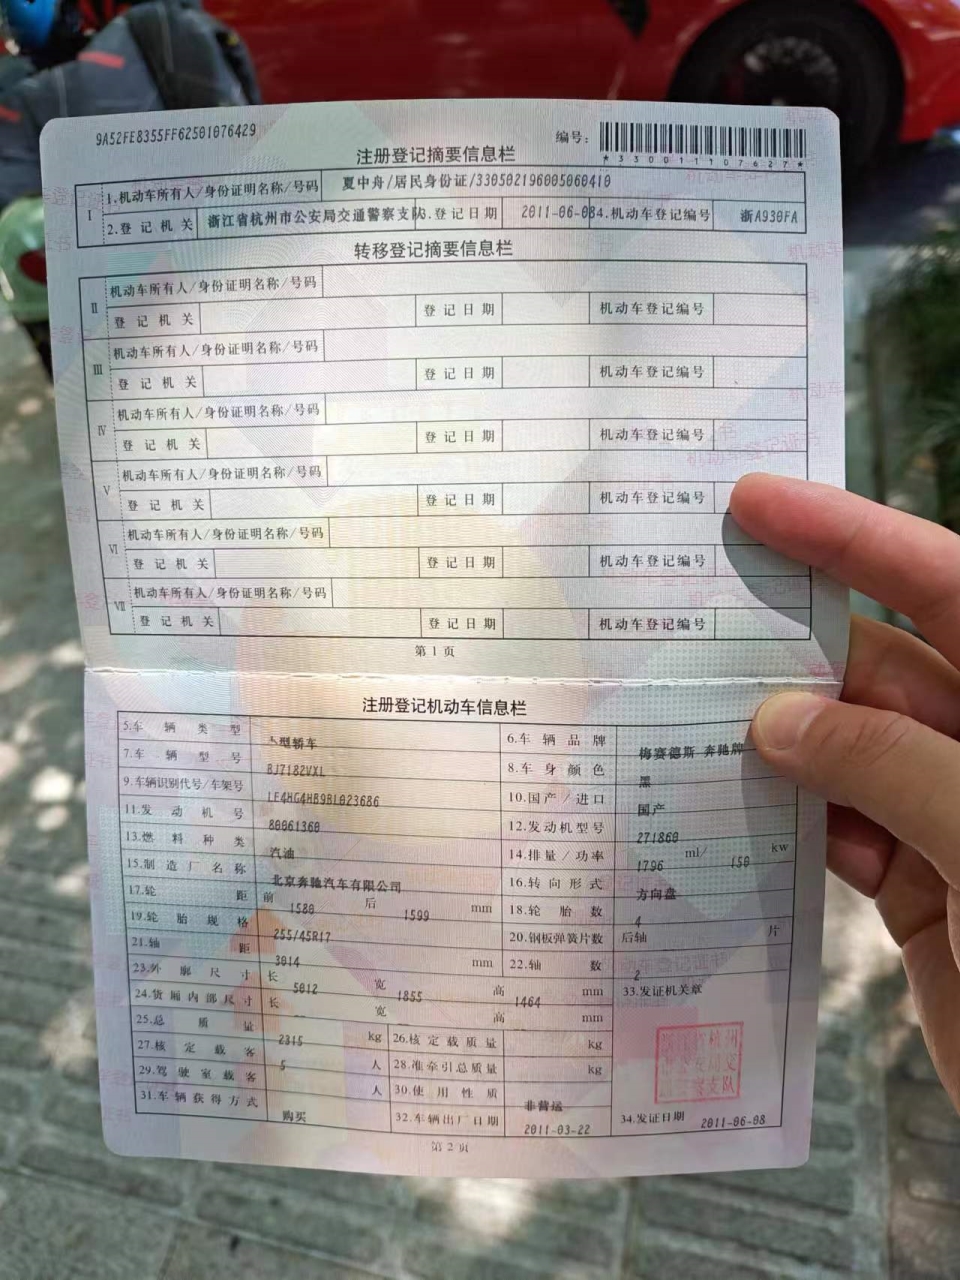 9A52FE8355FF62501076429
编号:
*330011107627*
注册登记摘要信息栏
I
1.机动车所有人/身份证明名称/号码 夏中舟/居民身份证/330502196005060410
2.登记机关 浙江省杭州市公安局交通警察支队 3.登记日期 2011-06-08 4.机动车登记编号 浙A930FA
转移登记摘要信息栏
II
机动车所有人/身份证明名称/号码
登记机关 登记日期 机动车登记编号
III
机动车所有人/身份证明名称/号码
登记机关 登记日期 机动车登记编号
IV
机动车所有人/身份证明名称/号码
登记机关 登记日期 机动车登记编号
V
机动车所有人/身份证明名称/号码
登记机关 登记日期 机动车登记编号
VI
机动车所有人/身份证明名称/号码
登记机关 登记日期 机动车登记编号
VII
机动车所有人/身份证明名称/号码
登记机关 登记日期 机动车登记编号
第1页
注册登记机动车信息栏
5.车辆类型 型轿车 6.车辆品牌 梅赛德斯 奔驰牌
7.车辆型号 BJ7182VXL 8.车身颜色 黑
9.车辆识别代号/车架号 LE4HG4HB9BL023686 10.国产/进口 国产
11.发动机号 80061360 12.发动机型号 271860
13.燃料种类 汽油 14.排量/功率 1796 ml/ 150 kw
15.制造厂名称 北京奔驰汽车有限公司 16.转向形式 方向盘
17.轮距 前 1580 后 1599 mm 18.轮胎数 4
19.轮胎规格 255/45R17 20.钢板弹簧片数 后轴 片
21.轴距 3014 mm 22.轴数 2
23.外廓尺寸 长 5012 宽 1855 高 1464 mm 33.发证机关章
24.货厢内部尺寸 长 宽 高 mm
25.总质量 2315 kg 26.核定载质量 kg
27.核定载客 5 人 28.准牵引总质量 kg
29.驾驶室载客 人 30.使用性质 非营运
31.车辆获得方式 购买 32.车辆出厂日期 2011-03-22 34.发证日期 2011-06-08
第2页